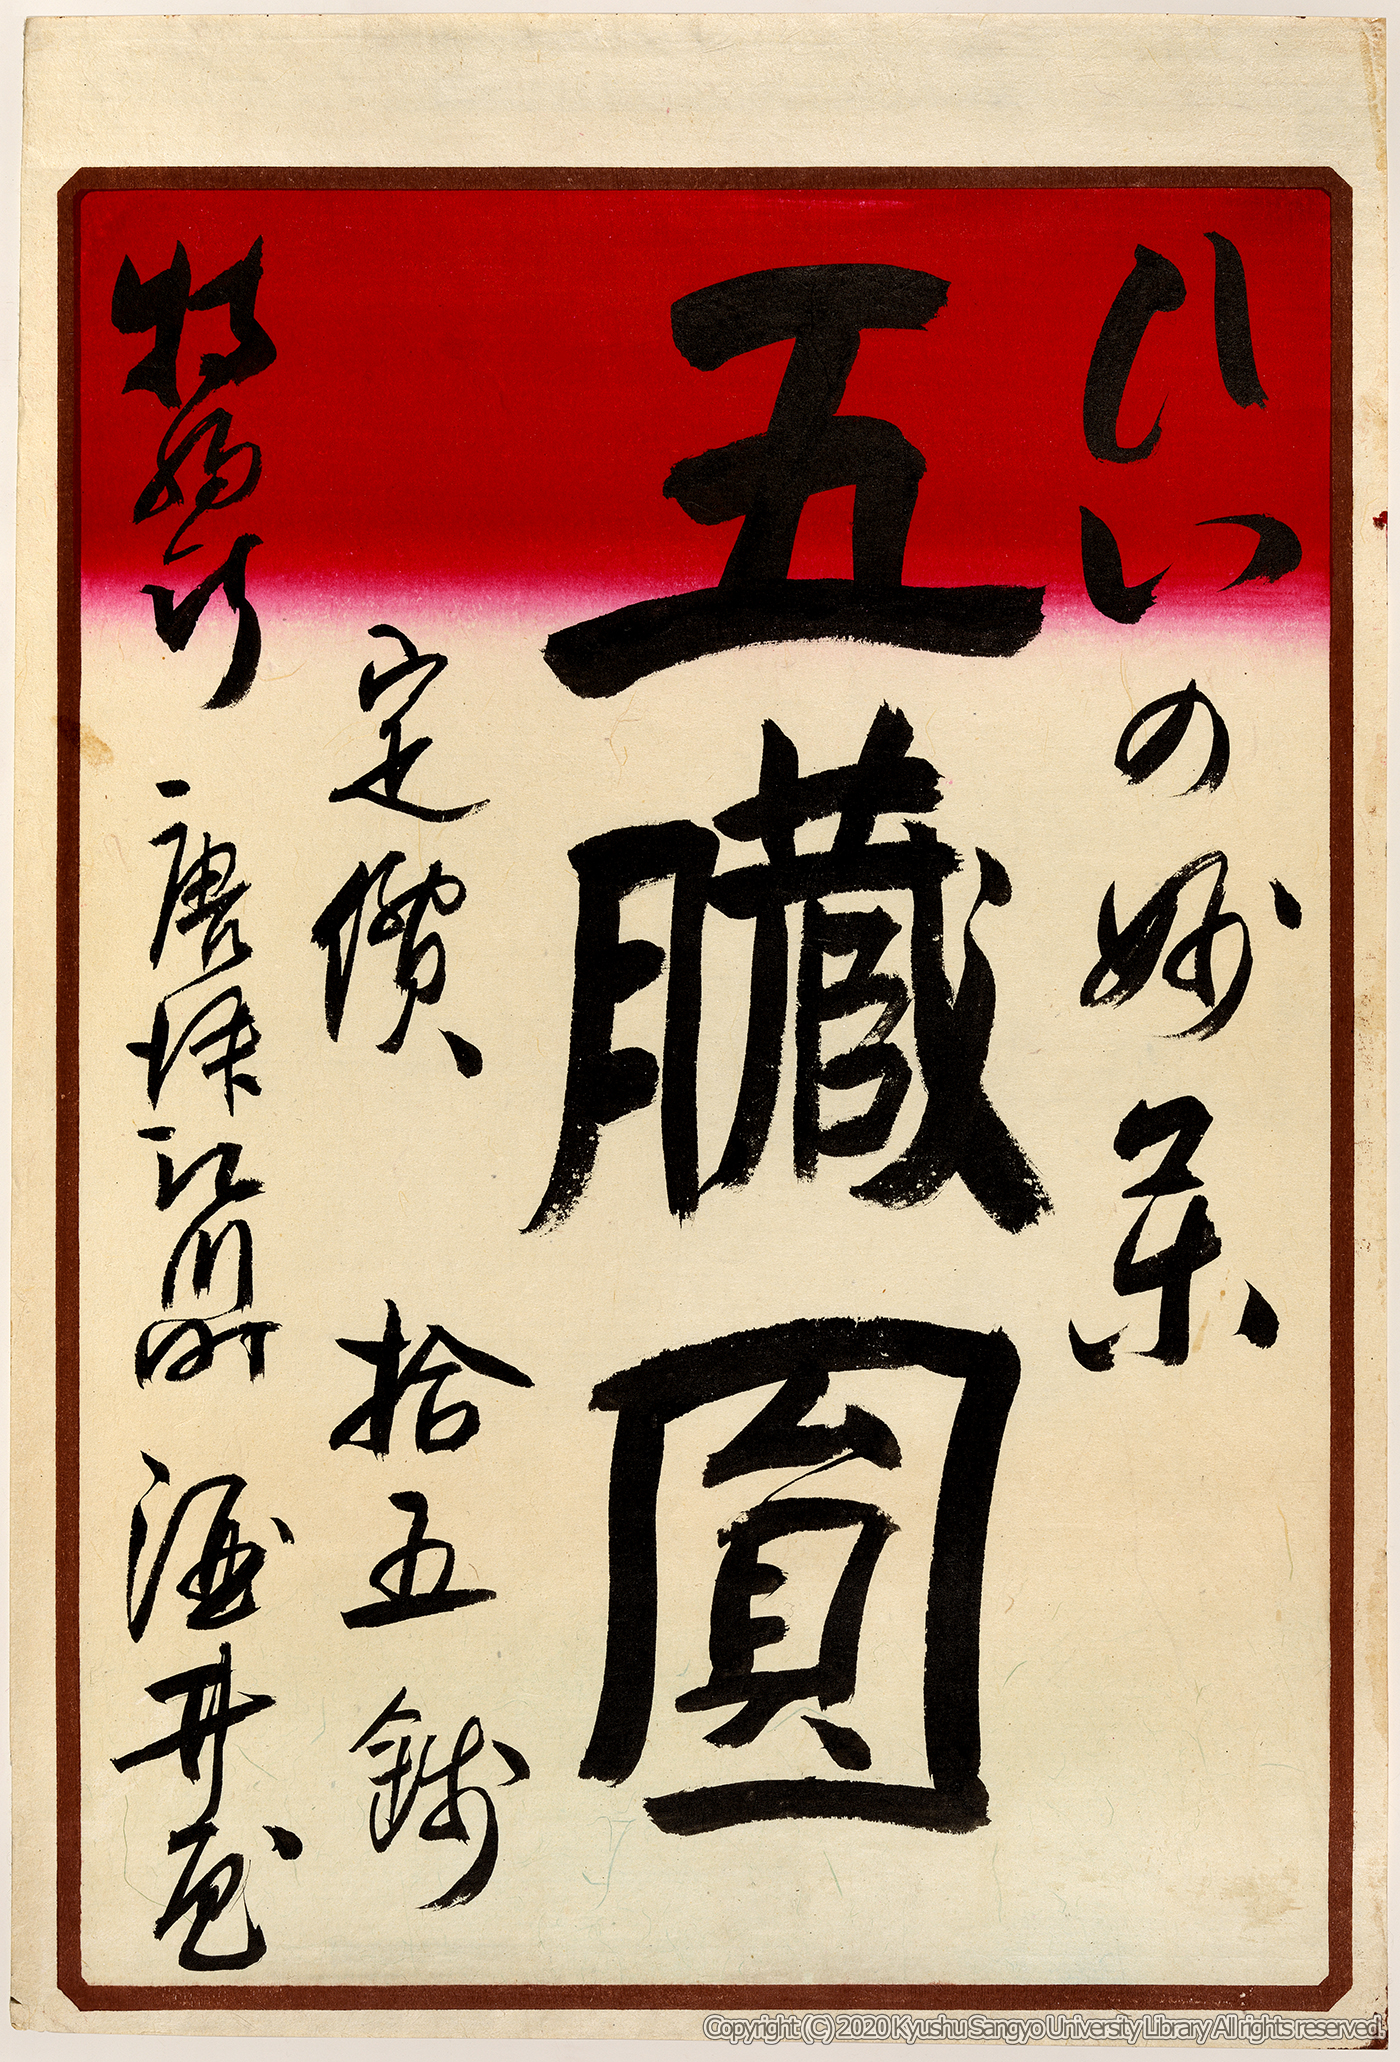 ひいの妙薬
五臓圓
定價 拾五錢
特約所 唐津江川町 酒井屋
Copyright (C) 2020 Kyushu Sangyo University Library All rights reserved.